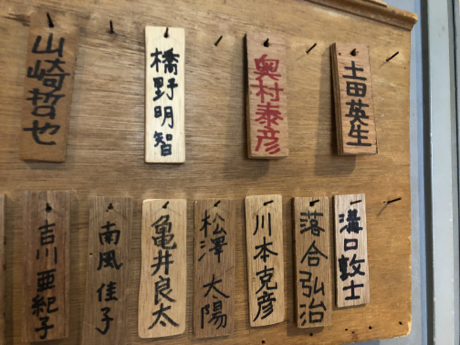 山崎哲也
橋野明智
奥村泰彦
土田英生
吉川亜紀子
南風佳子
亀井良太
松澤太陽
川本克彦
落合弘治
溝口敦士